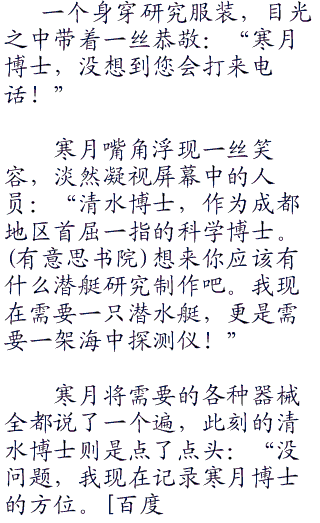 一个身穿研究服装，目光
之中带着一丝恭敬：“寒月
博士，没想到您会打来电
话！”
寒月嘴角浮现一丝笑
容，淡然凝视屏幕中的人
员：“清水博士，作为成都
地区首屈一指的科学博士。
(有意思书院)想来你应该有
什么潜艇研究制作吧。我现
在需要一只潜水艇，更是需
要一架海中探测仪！”
寒月将需要的各种器械
全都说了一个遍，此刻的清
水博士则是点了点头：“没
问题，我现在记录寒月博士
的方位。[百度